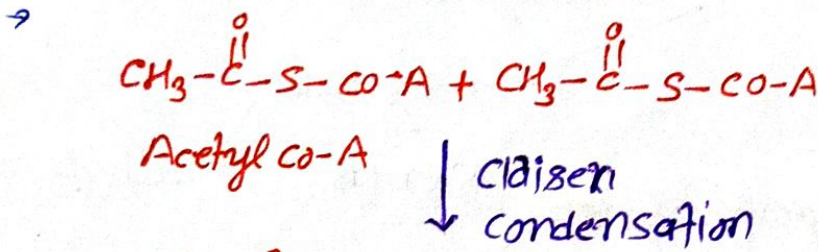 →
O O
CH3-C-S-CO-A + CH3-C-S-CO-A
Acetyl Co-A
Claisen
condensation